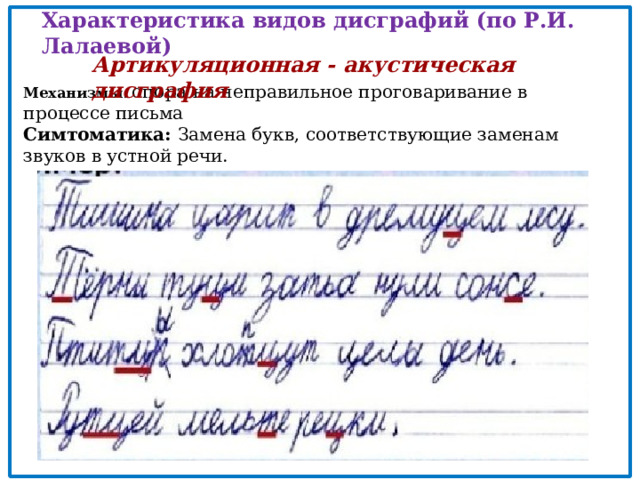 Характеристика видов дисграфий (по Р.И.
Лалаевой)
Артикуляционная - акустическая
дисграфия
Механизмы: опора на неправильное проговаривание в
процессе письма
Симтоматика: Замена букв, соответствующие заменам
звуков в устной речи.
Тишина царит в дремуцем лесу.
Тёрны туци затьа нули сонсе.
хлопцут целы день.
Рутцей мельте рецки.